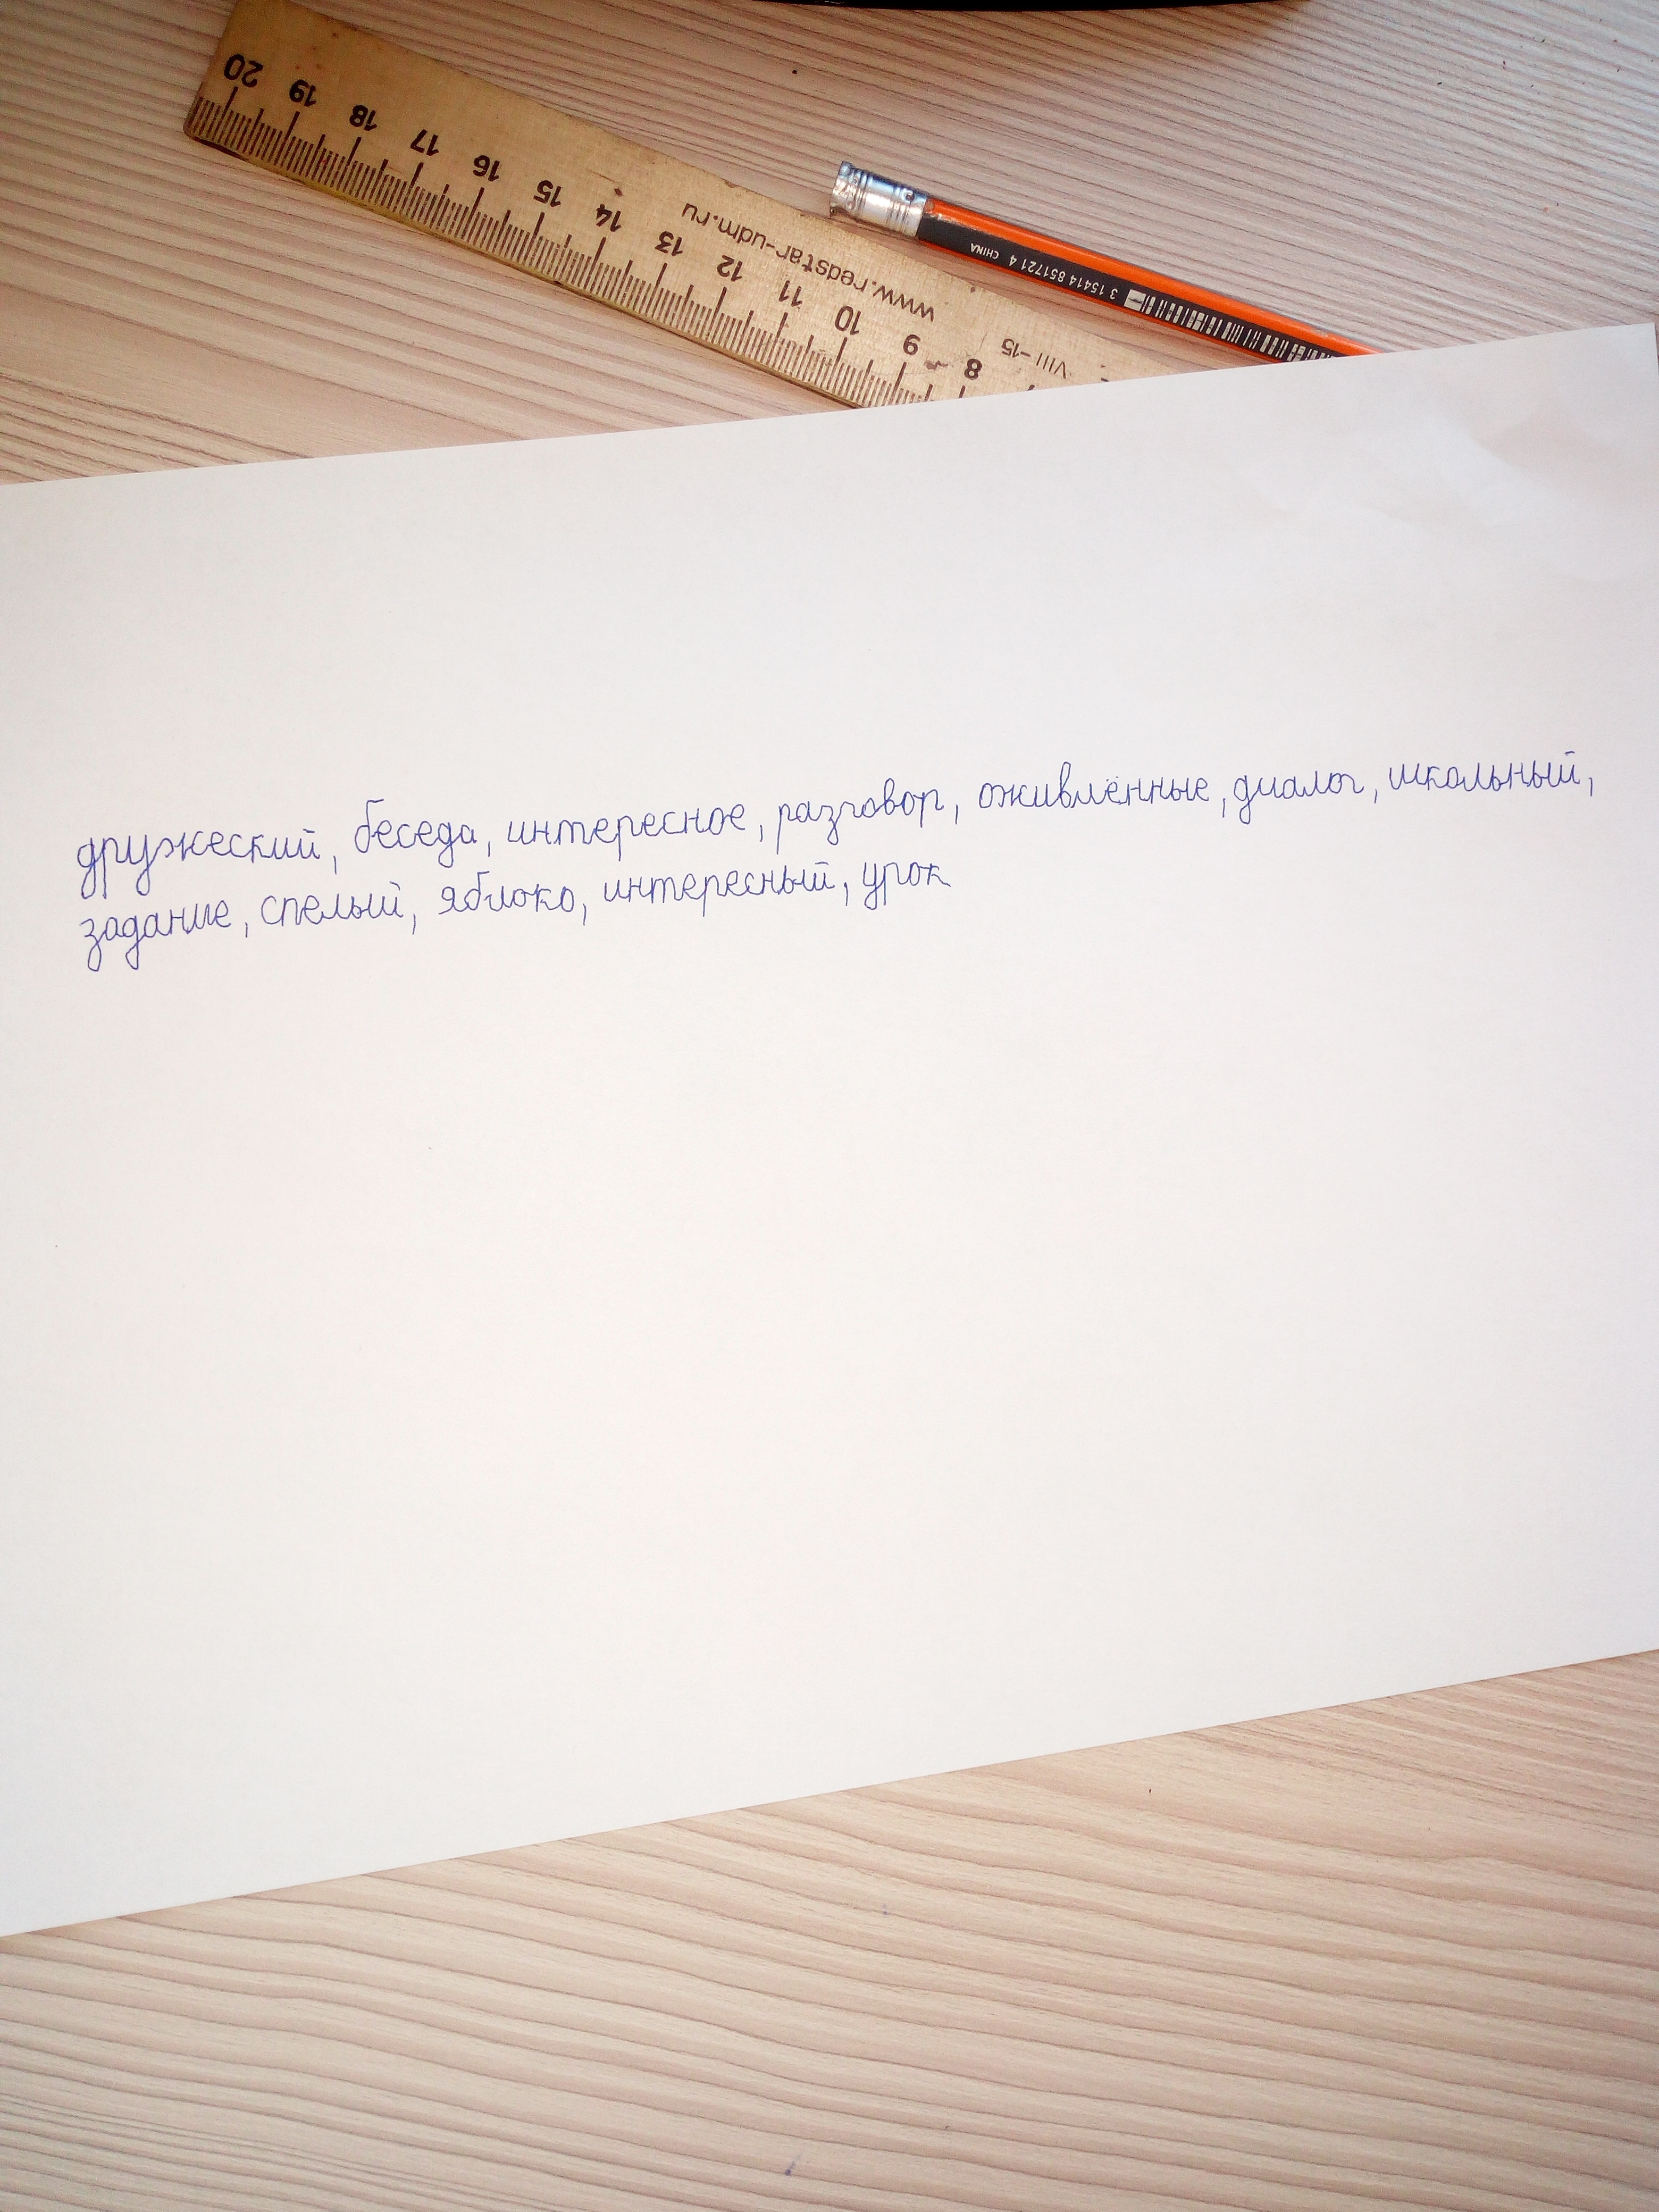 20 19 18 17 16 15 14 13 12 11 10 9 8
www.redstar-udm.ru
VIII-15
3 15414 851721 4 CHINA
дружеский, беседа, интересное, разговор, оживлённые, диалог, школьный,
задание, спелый, яблоко, интересный, урок